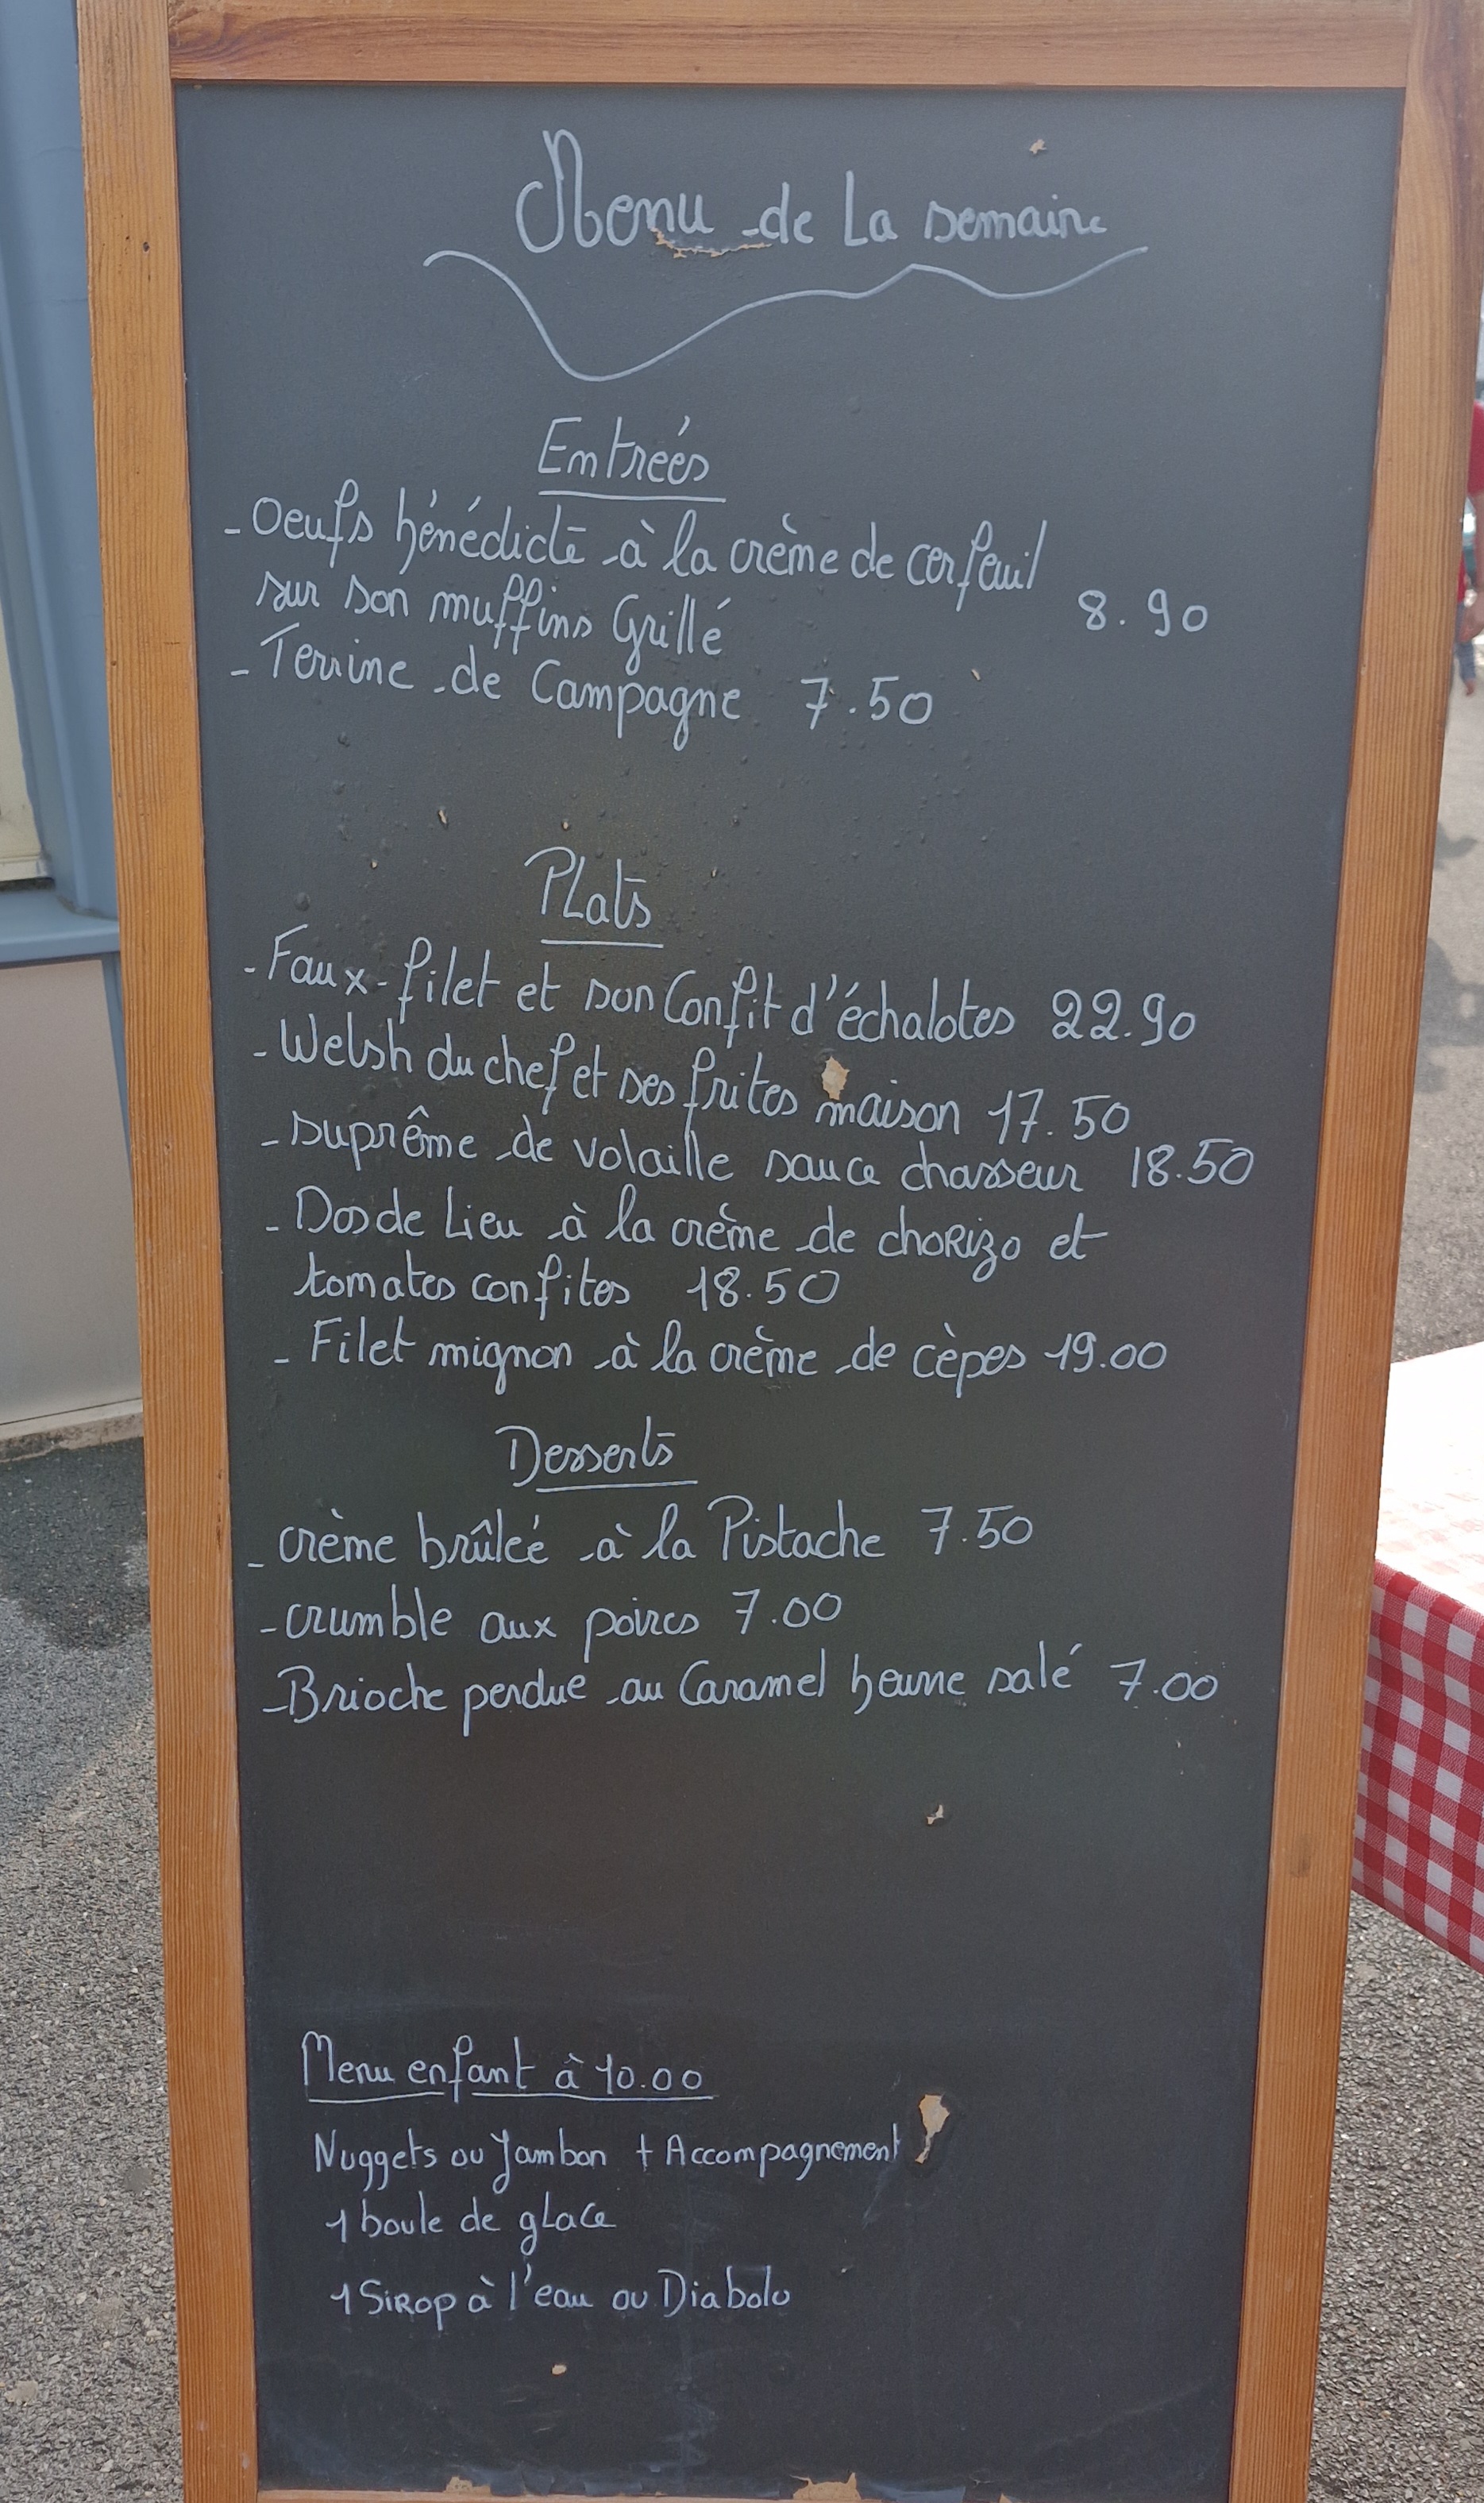 Menu de La semaine
Entrées
- Oeufs bénédicte à la crème de cerfeuil
sur son muffins Grillé 8.90
- Terrine de Campagne 7.50
Plats
- Faux-filet et son Confit d'échalotes 22.90
- Welsh du chef et ses frites maison 17.50
- suprême de volaille sauce chasseur 18.50
- Dos de Lieu à la crème de choRizo et
tomates confites 18.50
- Filet mignon à la crème de cèpes 19.00
Desserts
- crème brûleé à la Pistache 7.50
- crumble aux poires 7.00
- Brioche perdue au Caramel beurre salé 7.00
Menu enfant à 10.00
Nuggets ou Jambon + Accompagnement
1 boule de glace
1 SiRop à l'eau ou Diabolo